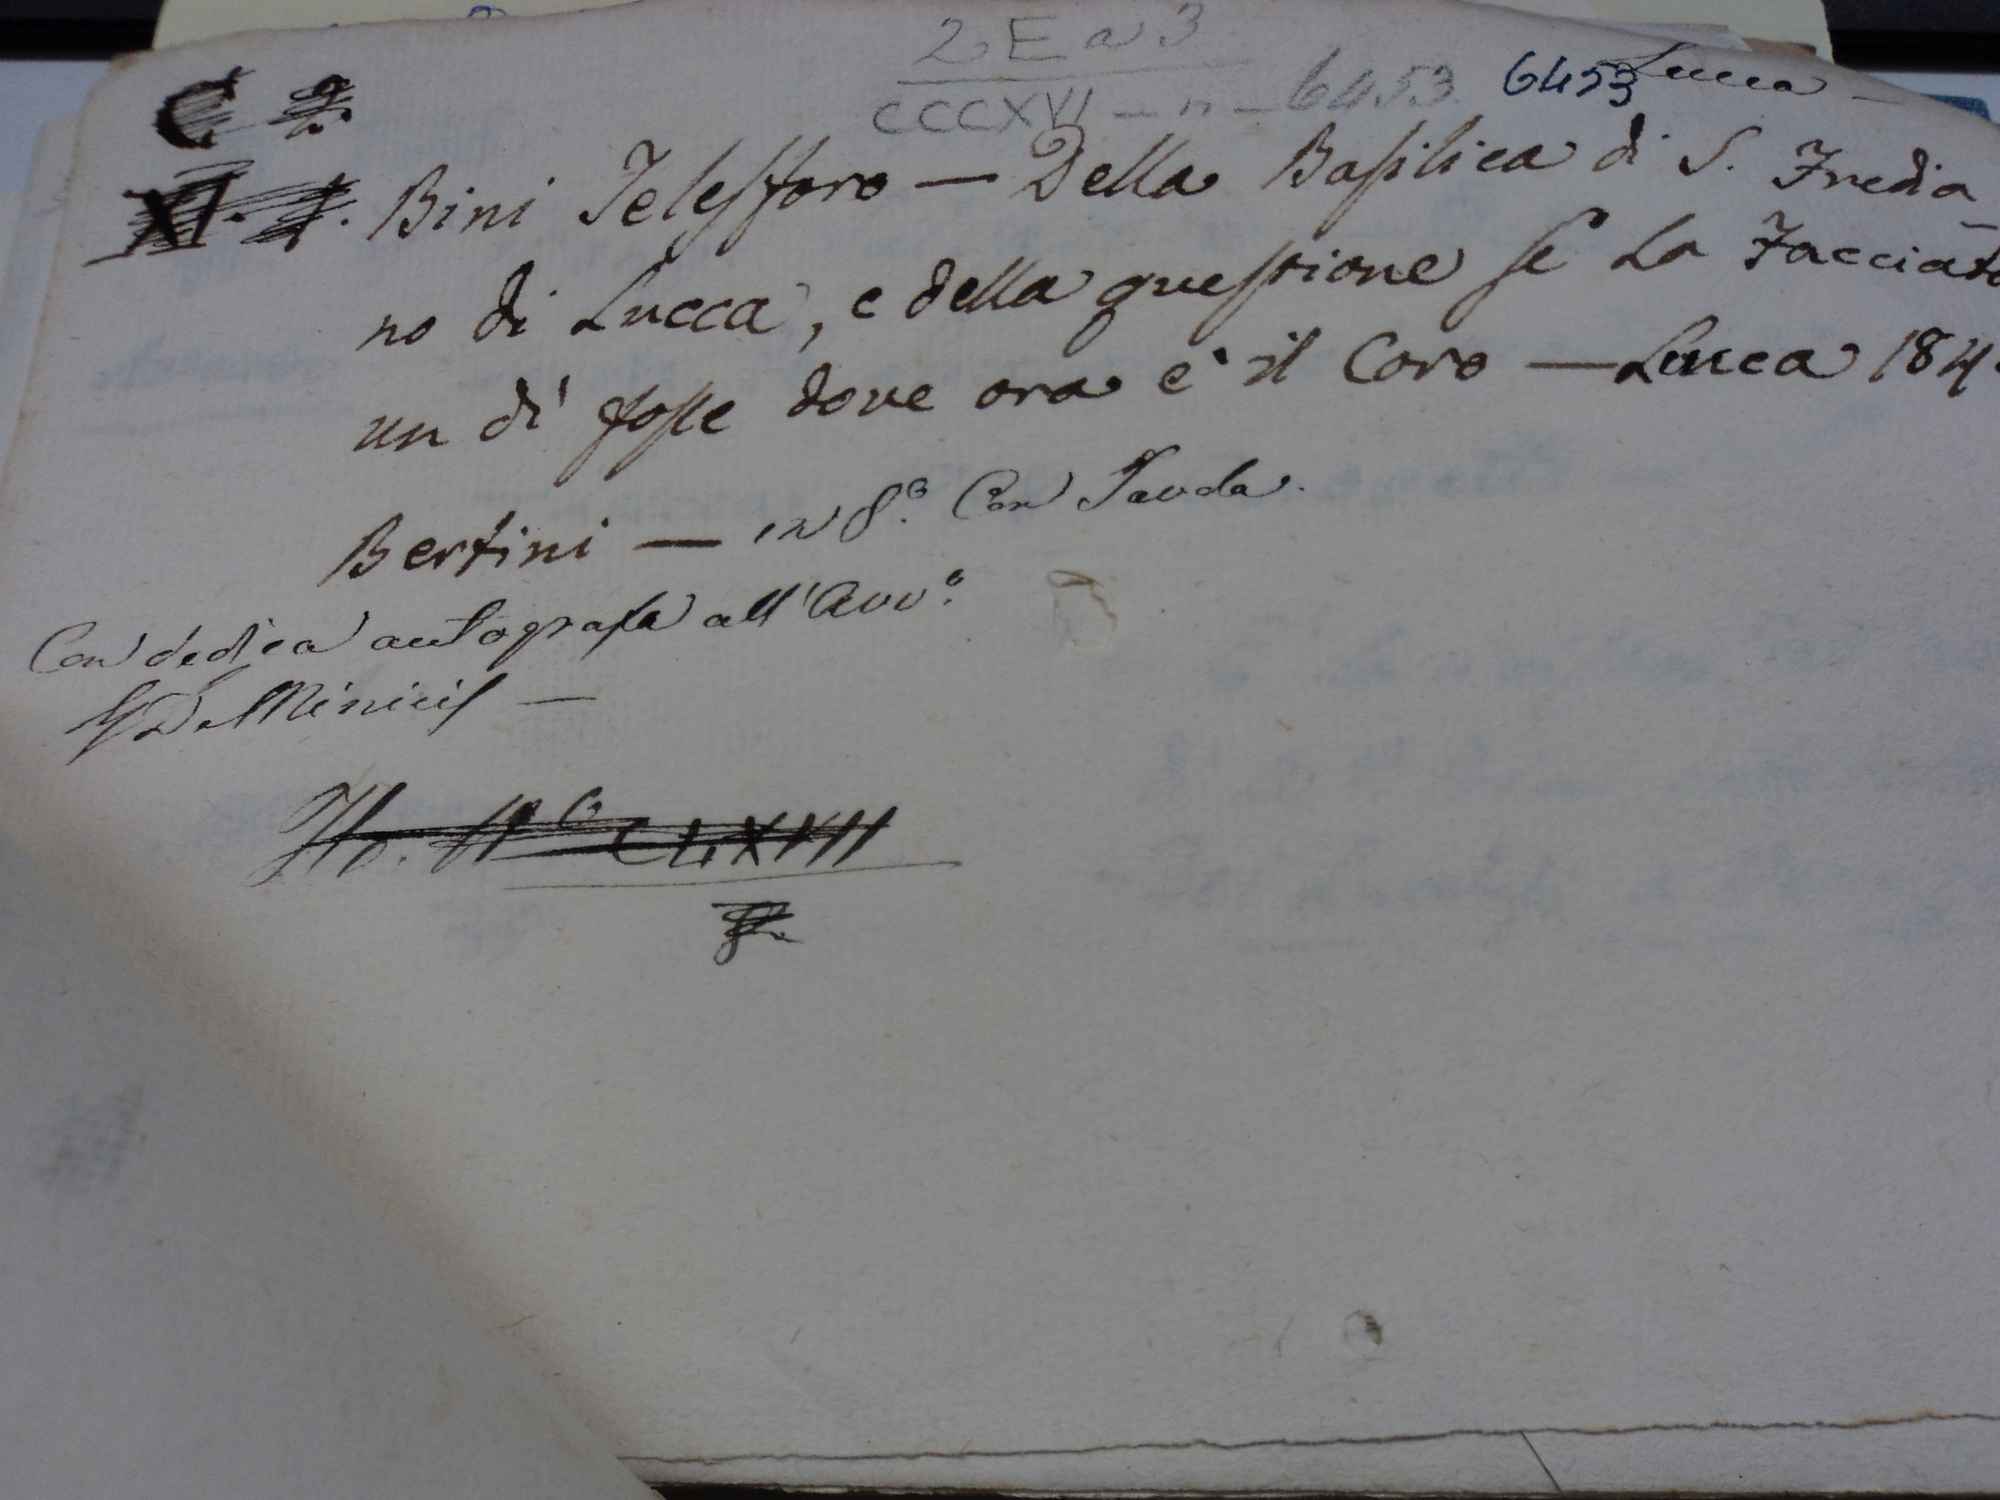 2 E a 3
CCCXVI - n - 6453 6453 Lucca -
C 2.
XI. 7. Bini Telesforo — Della Basilica di S. Fredia-
no di Lucca, e della questione se La Facciata
un dì fosse dove ora e' il Coro — Lucca 184
Bertini — in 8.º Con Tavola.
Con dedica autografa all'Avv.º
G De Minicis —
CLXVII